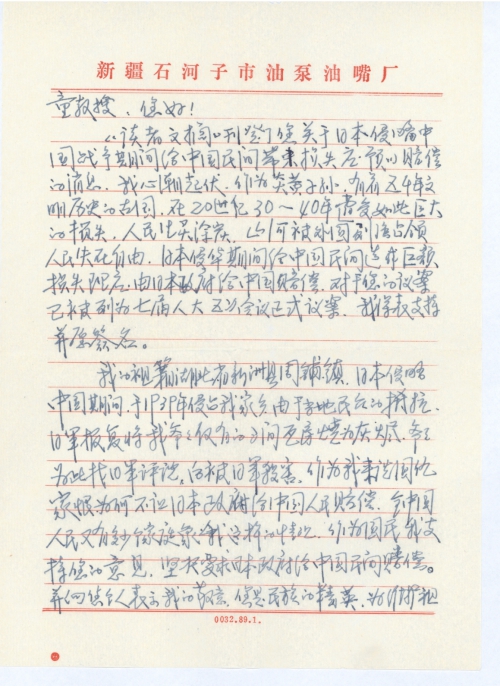 新疆石河子市油泵油嘴厂
童教授、您好!
《读者文摘》刊登了您关于日本侵略中
国战争期间给中国民间带来损失应予以赔偿
的消息，我心潮起伏，作为炎黄子孙，有着五千年文
明历史的古国，在20世纪30～40年代蒙受如此巨大
的损失，人民生灵涂炭，山河被外国列强占领
人民失去自由，日本侵华期间给中国民间造成巨额
损失理应由日本政府给中国赔偿，对于您的议案
已被列为七届人大五次会议正式议案，我深表支持
并愿签名。
我的祖籍湖北省新洲县周铺镇，日本侵略
中国期间，于1939年侵占我家乡由于当地民众的抵抗，
日军报复将我爷爷仅有的三间瓦房烧为灰烬，爷爷
为此找日军评说，白被日军殺害，作为我来说国仇
家恨为何不让日本政府给中国人民赔偿，全中国
人民又有多少家庭象我这样的情况，作为国民我支
持您的意见，坚决要求日本政府给中国民间赔偿。
并向您个人表示我的敬意，您是民族的精英，为维护祖
0032.89.1.